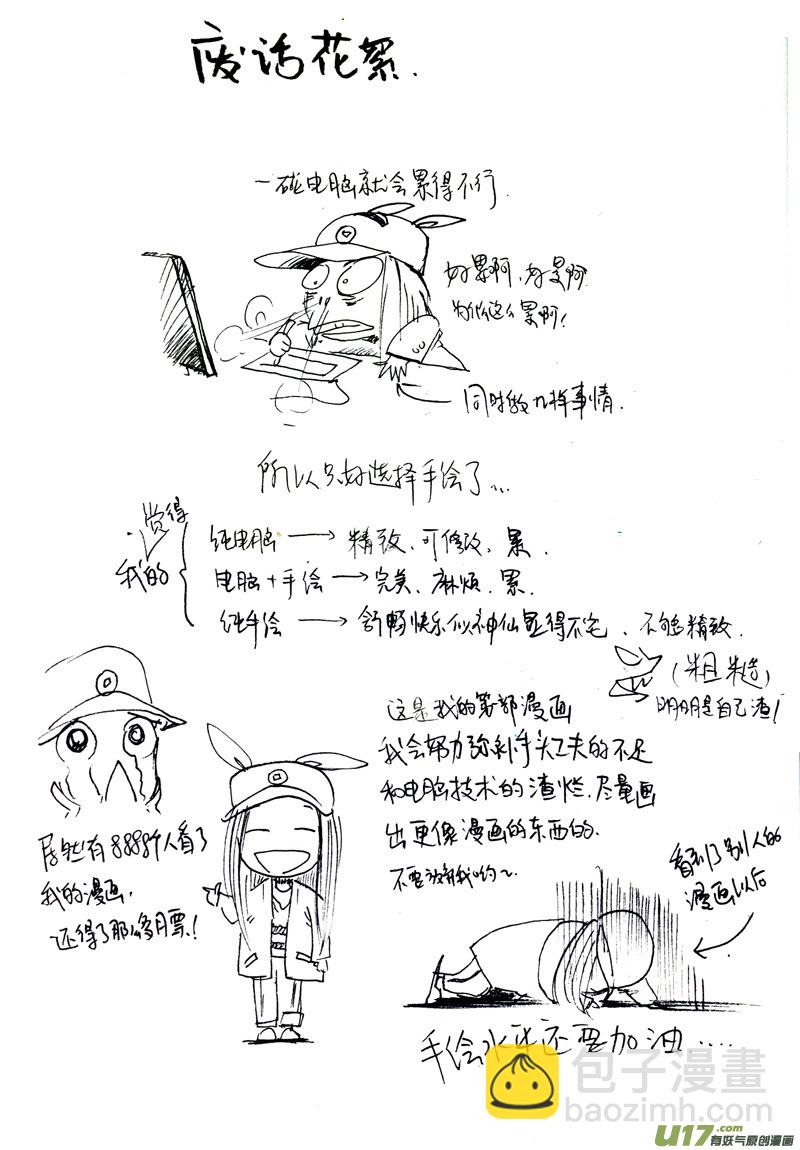 废话花絮.
一碰电脑就会累得不行.
好累啊、好晕啊
为什么这么累啊!
同时做九样事情.
所以只好选择手绘了...
我的觉得
纯电脑 → 精致、可修改、累.
电脑+手绘 → 完美、麻烦、累.
纯手绘 → 舒畅快乐似神仙显得不宅、不够精致.
(粗糙)
明明是自己渣!
这是我的第一部漫画
我会努力弥补手头工夫的不足
和电脑技术的渣烂.尽量画
出更像漫画的东西的.
不要放弃我哟~
居然有8888个人看了
我的漫画,
还得了那么多月票!
看到了别人的
漫画以后
手绘水平还要加油....
包子漫畫
baozimh.com
U17.com
有妖气原创漫画